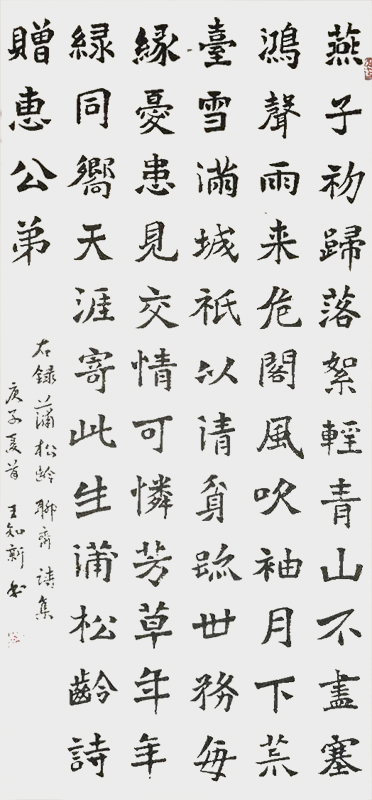 燕子初歸落絮輕青山不盡塞
鴻聲雨来危閣風吹袖月下荒
臺雪滿城祇以清貧踈世務每
緣憂患見交情可憐芳草年年
緑同嚮天涯寄此生蒲松齡詩
贈恵公弟
右録蒲松齡聊齋詩集
庚子夏首王知新书